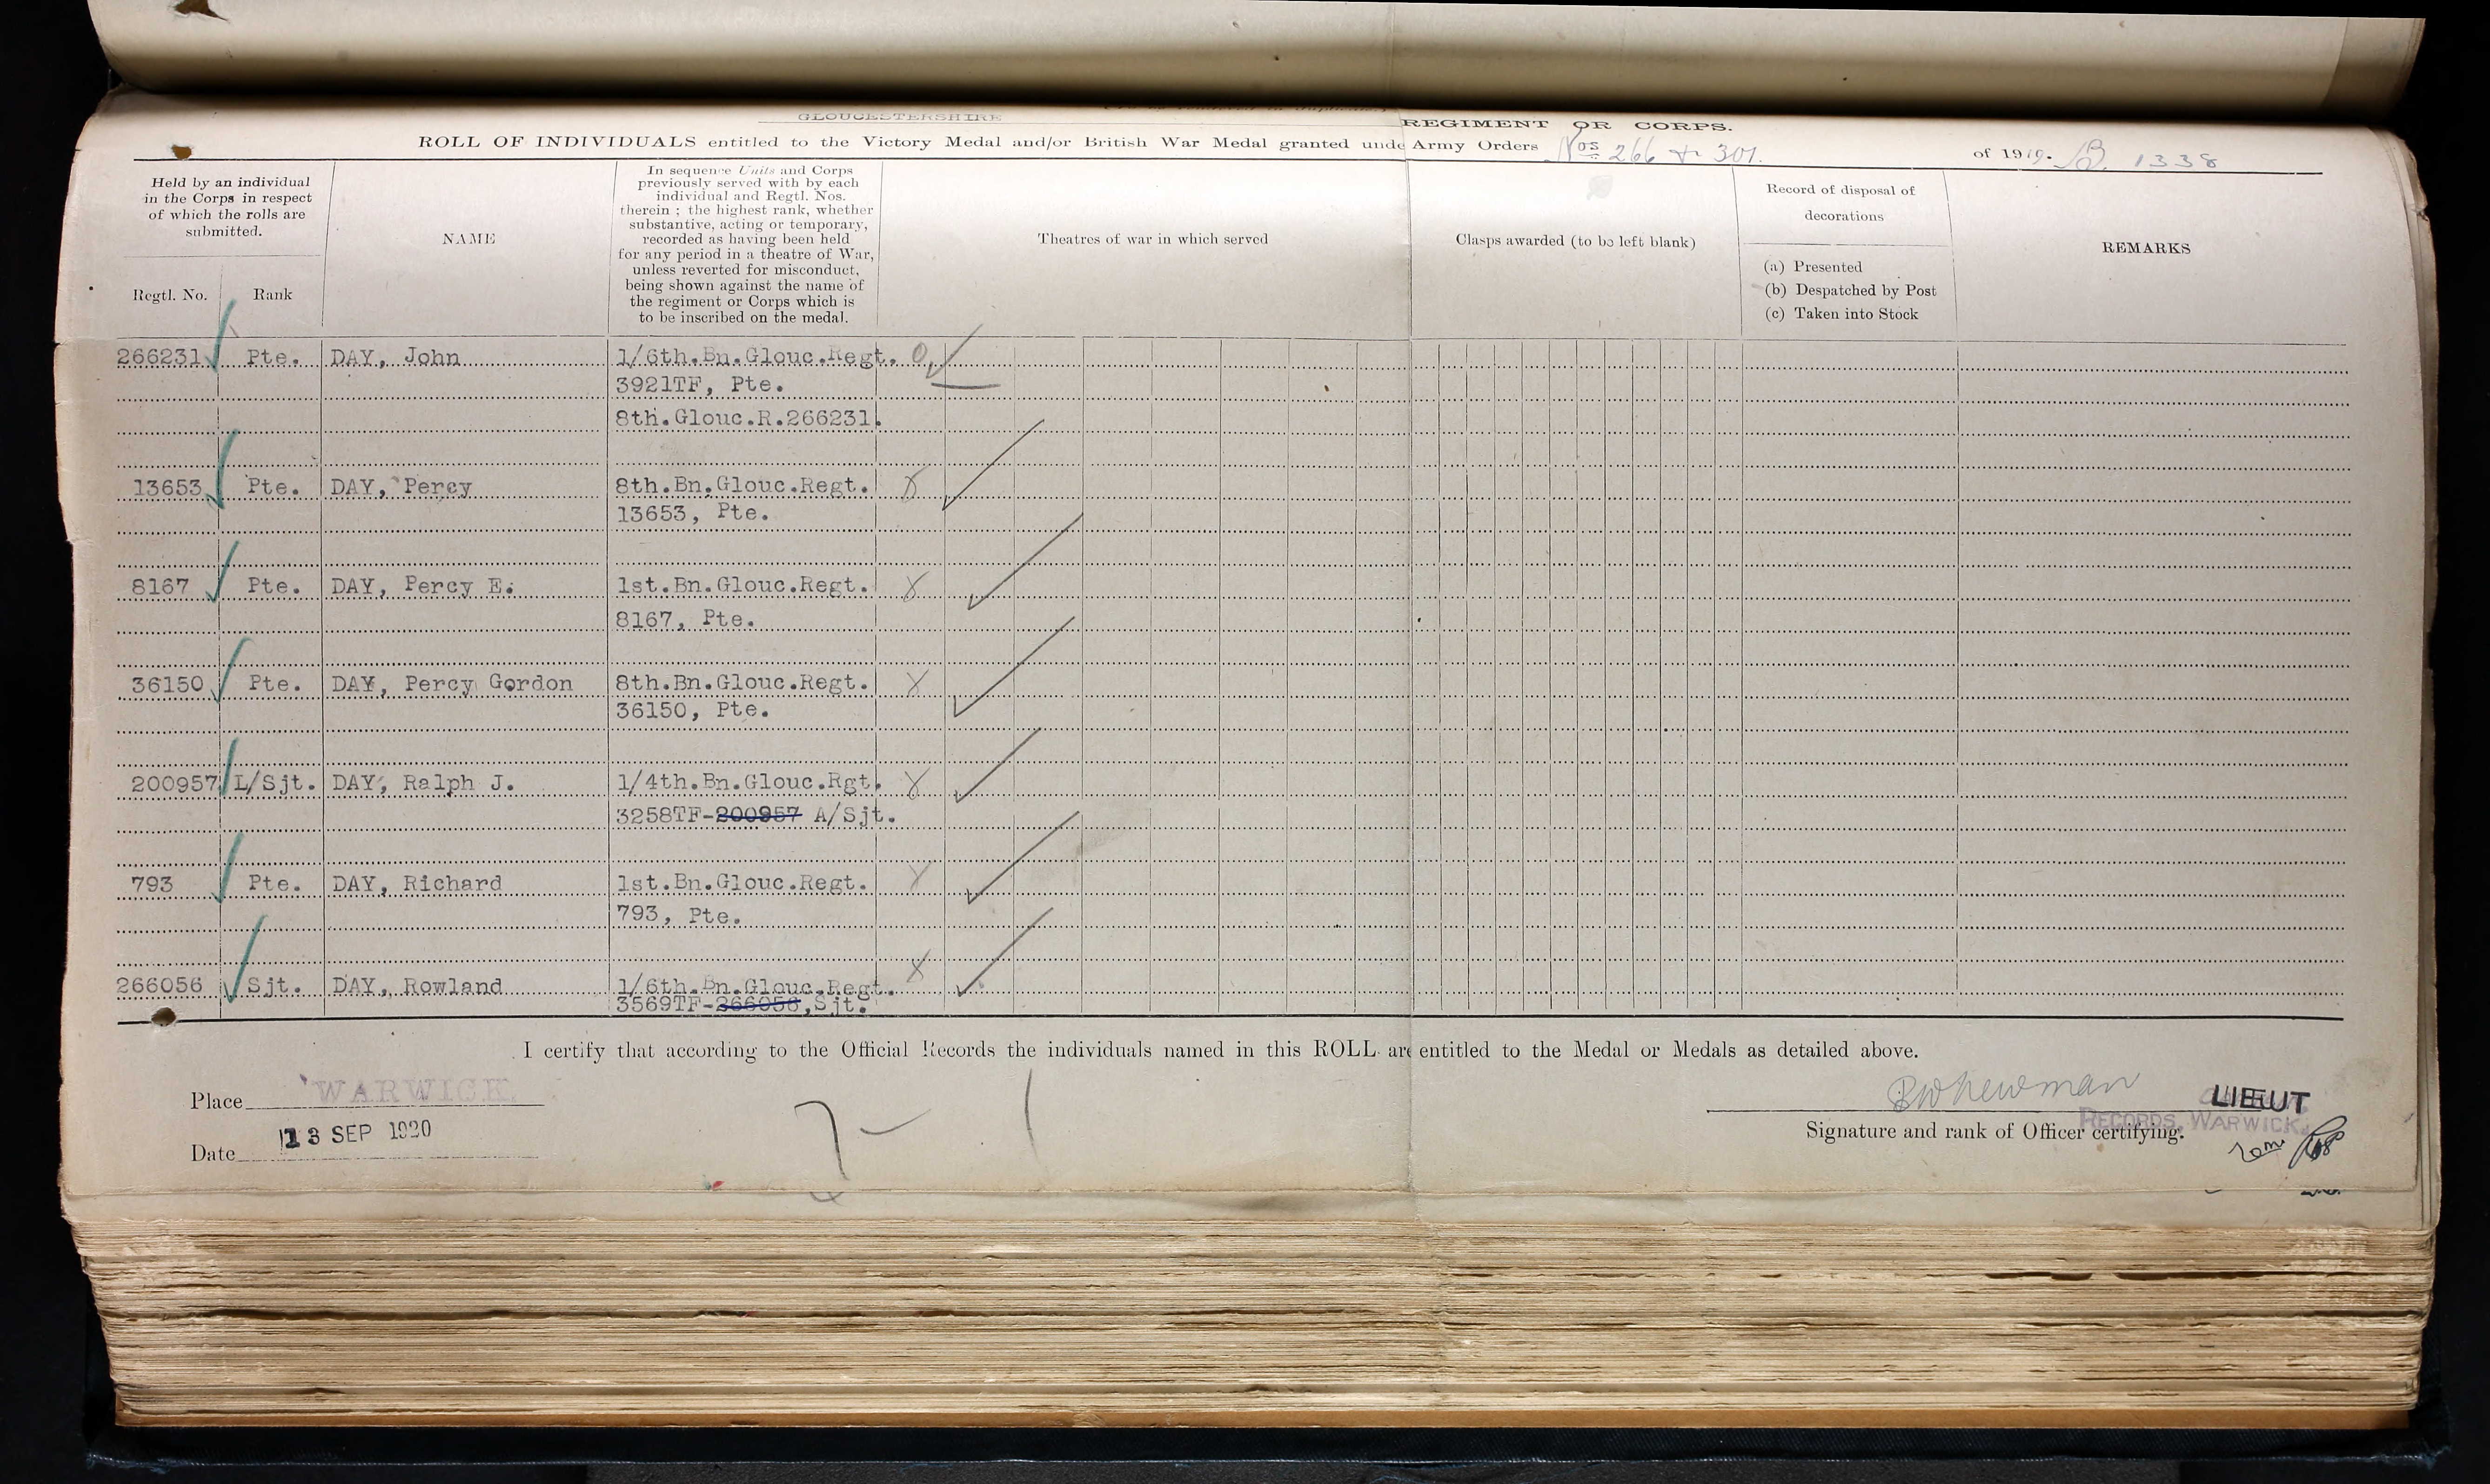 GLOUCESTERSHIRE
REGIMENT OR CORPS.
ROLL OF INDIVIDUALS entitled to the Victory Medal and/or British War Medal granted unde Army Orders Nos 266 & 301. of 1919. B. 1338
Held by an individual
in the Corps in respect
of which the rolls are
submitted.
Regtl. No. Rank
NAME
In sequence Units and Corps
previously served with by each
individual and Regtl. Nos.
therein ; the highest rank, whether
substantive, acting or temporary,
recorded as having been held
for any period in a theatre of War,
unless reverted for misconduct,
being shown against the name of
the regiment or Corps which is
to be inscribed on the medal.
Theatres of war in which served
Clasps awarded (to be left blank)
Record of disposal of
decorations
(a) Presented
(b) Despatched by Post
(c) Taken into Stock
REMARKS
266231 Pte. DAY, John 1/6th.Bn.Glouc.Regt.
3921TF, Pte.
8th.Glouc.R.266231.
13653 Pte. DAY, Percy 8th.Bn.Glouc.Regt.
13653, Pte.
8167 Pte. DAY, Percy E. 1st.Bn.Glouc.Regt.
8167, Pte.
36150 Pte. DAY, Percy Gordon 8th.Bn.Glouc.Regt.
36150, Pte.
200957 L/Sjt. DAY, Ralph J. 1/4th.Bn.Glouc.Rgt.
3258TF-200957 A/Sjt.
793 Pte. DAY, Richard 1st.Bn.Glouc.Regt.
793, Pte.
266056 Sjt. DAY, Rowland 1/6th.Bn.Glouc.Regt.
3569TF-266056,Sjt.
I certify that according to the Official Records the individuals named in this ROLL are entitled to the Medal or Medals as detailed above.
Place WARWICK
Date 13 SEP 1920
BW Newman LIEUT
RECORDS, WARWICK.
Signature and rank of Officer certifying.